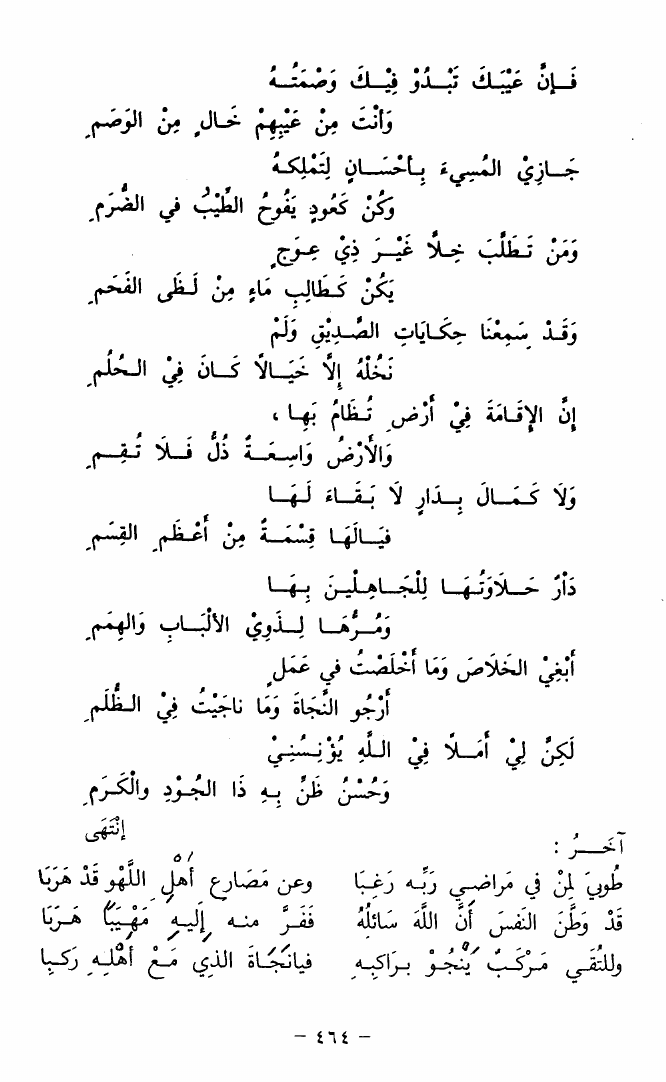 فَإِنَّ عَيْبَكَ تَبْدُوْ فِيْكَ وَصْمَتُهُ
وَأَنْتَ مِنْ عَيْبِهِمْ خَالٍ مِنْ الوَصَمِ
جَازِيْ المُسِيءَ بِأحْسَانٍ لِتَمْلِكهُ
وَكُنْ كَعُودٍ يَفُوحُ الطِّيْبُ في الضُّرَمِ
وَمَنْ تَطَلَّبَ خِلاًّ غَيْرَ ذِيْ عِوَجٍ
يَكُنْ كَطَالِبِ مَاءٍ مِنْ لَظَى الفَحَمِ
وَقَدْ سَمِعْنَا حِكَايَاتِ الصَّدِيْقِ وَلَمْ
نَخُلْهُ إِلَّا خَيَالًا كَانَ فِيْ الحُلُمِ
إِنَّ الإِقَامَةَ فِيْ أَرْضٍ تُظَامُ بَهِا ،
وَالأَرْضُ وَاسِعَةٌ ذُلُّ فَلَا تُقِمِ
وَلَا كَمَالَ بِدَارٍ لَا بَقَاءَ لَهَا
فَيَالَهَا قِسْمَةً مِنْ أَعْظَمِ القِسَمِ
دَارٌ حَلَاوَتُهَا لِلْجَاهِلِيْنَ بِهَا
وَمُرُّهَا لِذَوِيْ الألْبَابِ وَالهِمَمِ
أَبْغِيْ الخَلَاصَ وَمَا أَخْلَصْتُ في عَمَلٍ
أَرْجُو النَّجَاةَ وَمَا ناجَيْتُ فِيْ الظُّلَمِ
لَكِنَّ لِيْ أَمَلاً فِيْ اللَّهِ يُؤْنِسُنِيْ
وَحُسْنُ ظَنٍّ بِهِ ذَا الجُوْدِ والْكَرَمِ
إنْتَهَى
آخَرُ :
طُوبيَ لِمنْ في مَراضي رَبِّه رَغِبَا وعن مَصَارِعِ أهْلِ اللَّهْوِ قَدْ هَرَبَا
قَدْ وَطَّنَ النَفسَ أَنَّ اللَّهَ سَائلُهُ فَفَرَّ منه إليهِ مَهْيَبًا هَرَبَا
وللتُقَي مَرْكَبٌ يَنْجُوْ براكبِهِ فيانَجَاةَ الذي مَعْ أهْلهِ رَكبا
- ٤٦٤ -